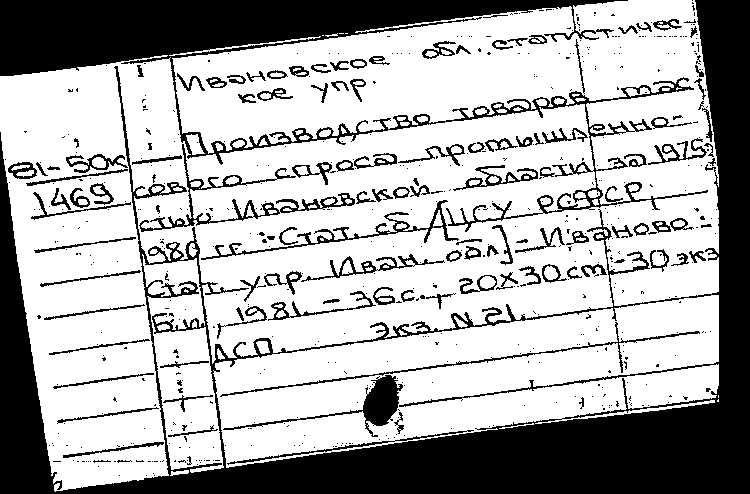 Ивановское обл. статистичес
кое упр.
Производство товаров мас
81-50к
сового спроса промышленно-
1469
стью Ивановской области за 1975
1980 гг. :-Стат. сб. /[ЦСУ РСФСР;
Стат. упр. Иван. обл]- Иваново:
Б.и., 1981. - 36 с.; 20х30 cm.-30 экз
ДСП. Экз. N 21.